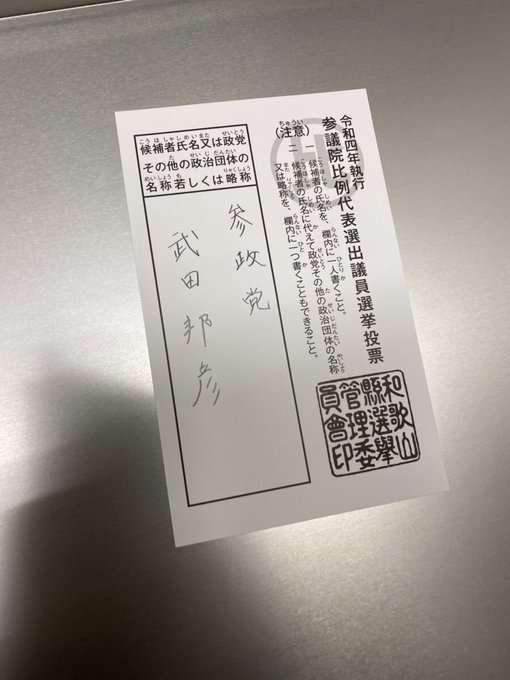 令和四年執行
参議院比例代表選出議員選挙投票
(注意)
一 候補者の氏名を、欄内に一人書くこと。
二 候補者の氏名に代えて政党その他の政治団体の名称
又は略称を、欄内に一つ書くこともできること。
和歌山
縣選擧
管理委
員會印
候補者氏名又は政党
その他の政治団体の
名称若しくは略称
参政党
武田邦彦